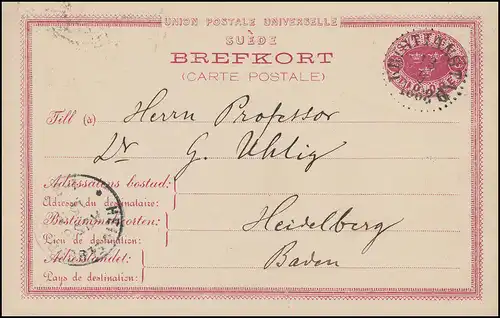 UNION POSTALE UNIVERSELLE
SUÈDE
BREFKORT
(CARTE POSTALE)
Till (à) Herrn Professor
Dr G. Uhlig
Adressatens bostad:
Adresse du destinataire:
Bestämmelseorten: Heidelberg
Lieu de destination:
Adresslandet: Baden
Pays de destination: